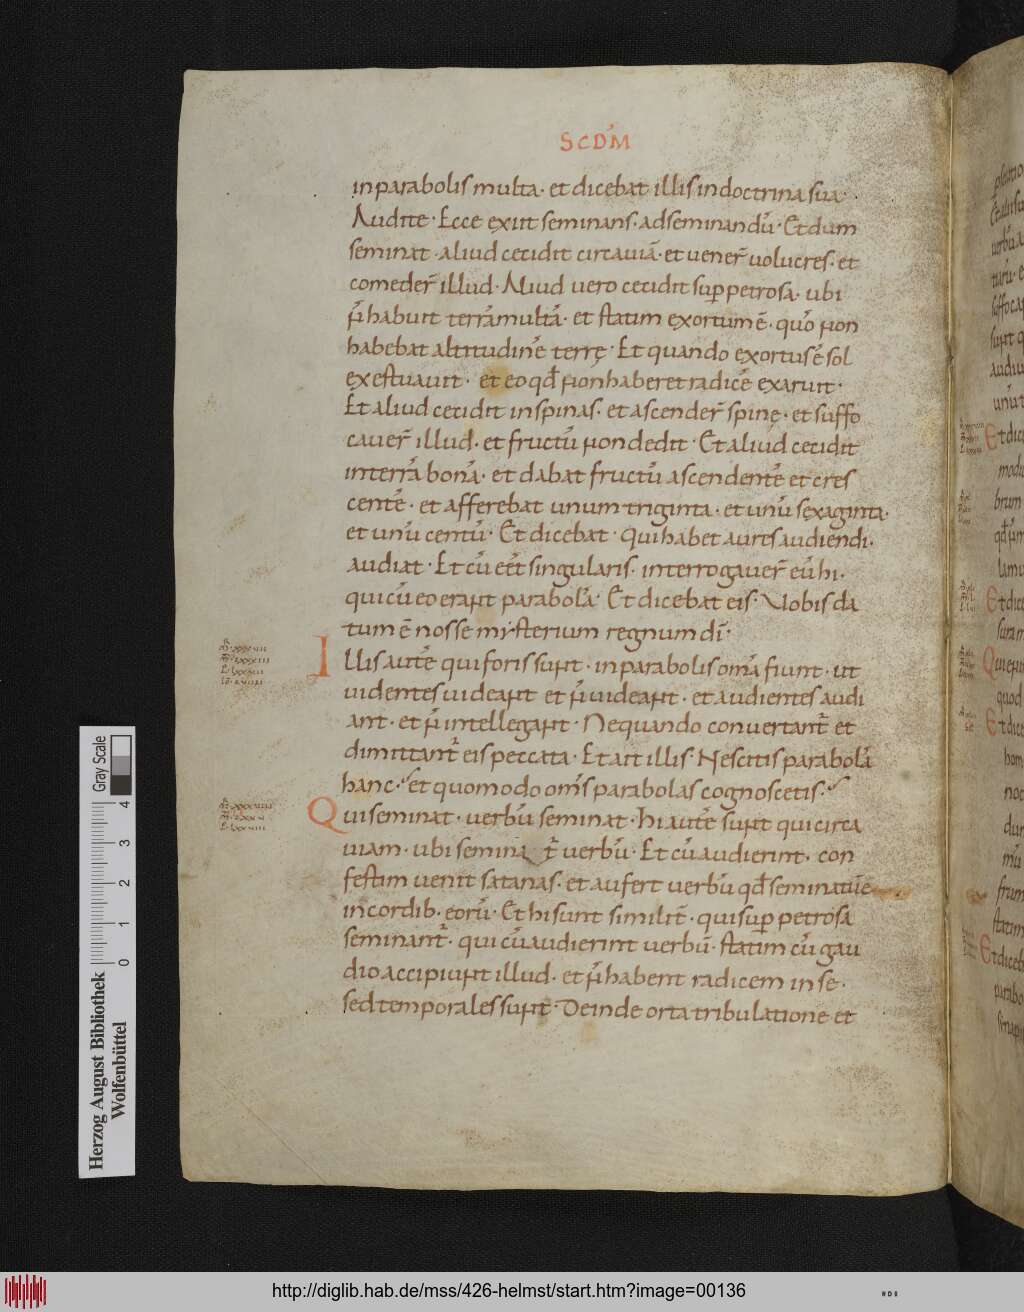 SCDM̄
in parabolis multa · et dicebat illis in doctrina sua ·
Audite · Ecce exiit seminans · ad seminandū · Et dum
seminat · aliud cecidit circa uiā · et uener̄ uolucres · et
comeder̄ illud · Aliud uero cecidit sup̄ petrosa · ubi
n̄ habuit terrā multā · et statim exortum ē · quō non
habebat altitudinē terrę · Et quando exortus ē sol
exęstuauit · et eo qd̄ non haberet radicē exaruit ·
Et aliud cecidit in spinas · et ascender̄ spinę · et suffo
cauer̄ illud · et fructū non dedit · Et aliud cecidit
in terrā bonā · et dabat fructū ascendentē et cres
centē · et afferebat unum triginta · et unū sexaginta ·
et unū centū · Et dicebat · Qui habet aures audiendi ·
audiat · Et cū eēt singularis · interrogauer̄ eū hi ·
qui cū eo erant parabolā · Et dicebat eis · Uobis da
tum ē nosse mysterium regnum dī ·
Illis autē qui foris sunt · in parabolis omā fiunt · ut
uidentes uideant et n̄ uideant · et audientes audi
ant · et n̄ intellegant · Nequando conuertant̄ et
dimittant̄ eis peccata · Et ait illis · Nescitis parabolā
hanc · et quomodo om̄s parabolas cognoscetis ·
Qui seminat · uerbū seminat · Hi autē sunt qui circa
uiam · ubi semina t̄ uerbū · Et cū audierint · con
festim uenit satanas · et aufert uerbū qd̄ seminatū e
in cordib · eorū · Et hi sunt similit̄ · qui sup̄ petrosa
seminant̄ · qui cū audierint uerbū · statim cū gau
dio accipiunt illud · et n̄ habent radicem in se ·
sed temporales sunt · Deinde orta tribulatione et
Gray Scale
0 1 2 3 4
Herzog August Bibliothek
Wolfenbüttel
http://diglib.hab.de/mss/426-helmst/start.htm?image=00136